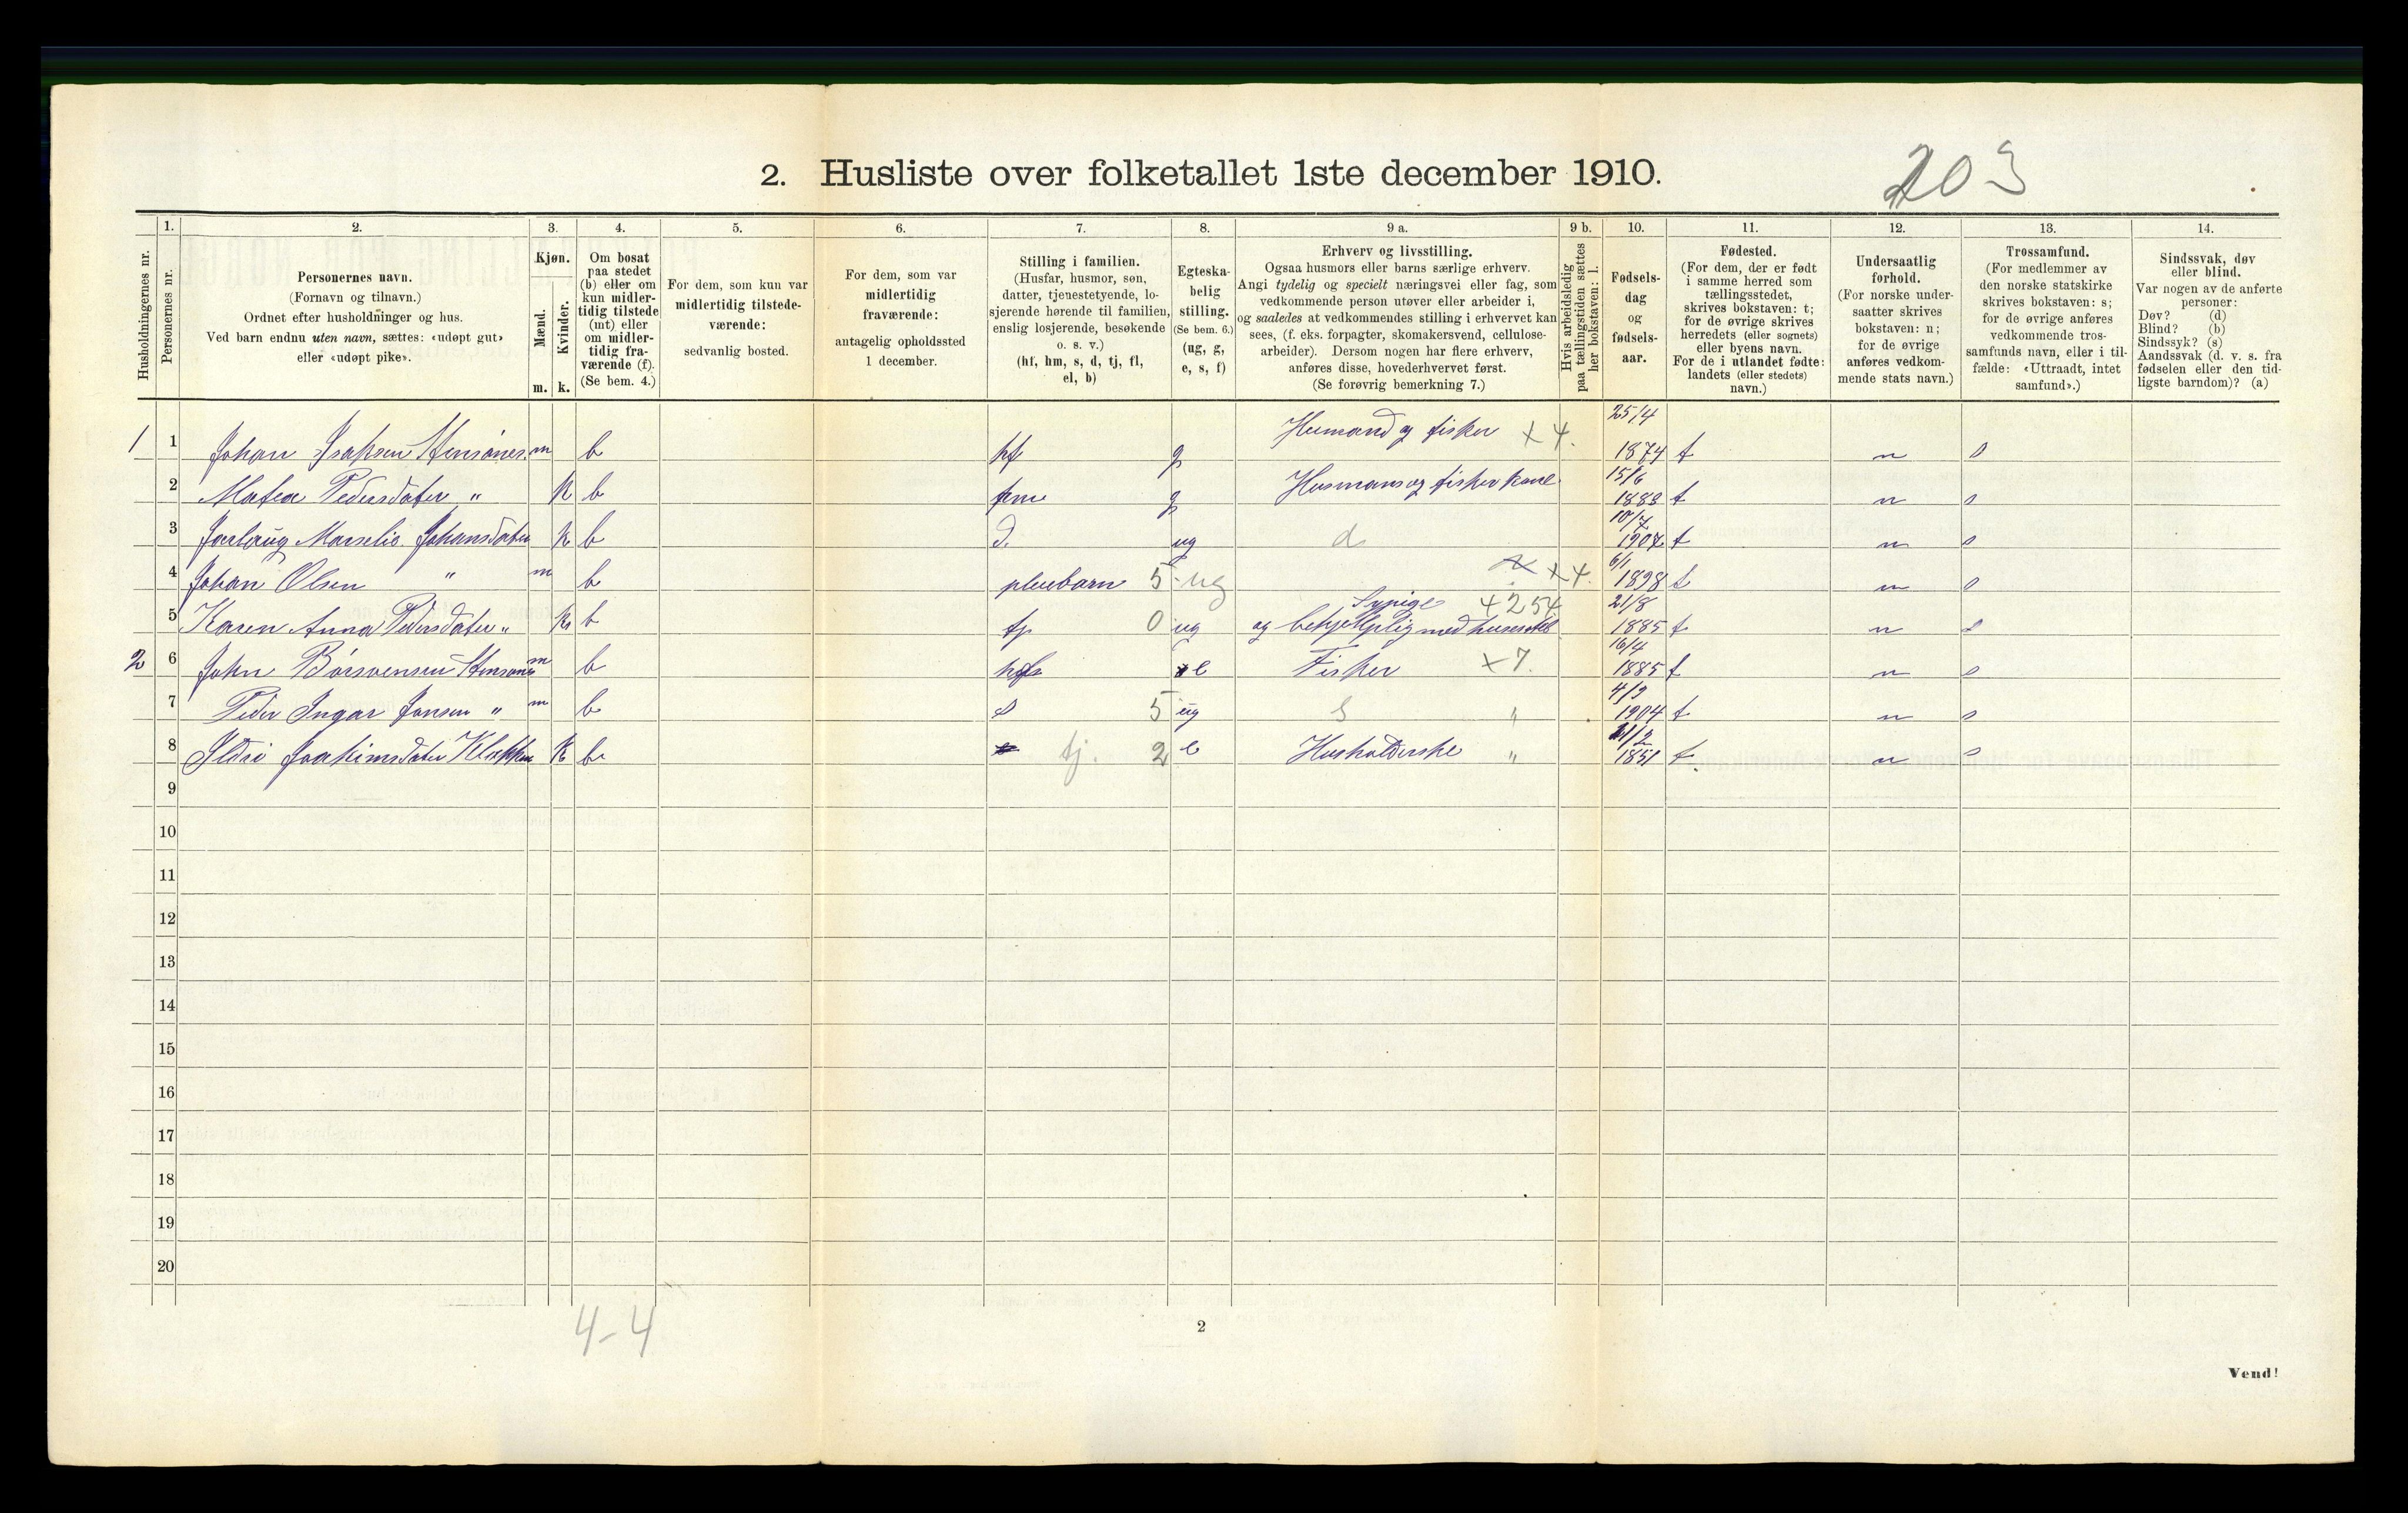 2. Husliste over folketallet 1ste december 1910.
203
Husholdningernes nr.
1.
Personernes nr.
2.
Personernes navn.
(Fornavn og tilnavn.)
Ordnet efter husholdninger og hus.
Ved barn endnu uten navn, sættes: «udøpt gut»
eller «udøpt pike».
3.
Kjøn.
Mænd.
Kvinder.
m. k.
4.
Om bosat
paa stedet
(b) eller om
kun midler-
tidig tilstede
(mt) eller
om midler-
tidig fra-
værende (f).
(Se bem. 4.)
5.
For dem, som kun var
midlertidig tilstede-
værende:
sedvanlig bosted.
6.
For dem, som var
midlertidig
fraværende:
antagelig opholdssted
1 december.
7.
Stilling i familien.
(Husfar, husmor, søn,
datter, tjenestetyende, lo-
sjerende hørende til familien,
enslig losjerende, besøkende
o. s. v.)
(hf, hm, s, d, tj, fl,
el, b)
8.
Egteska-
belig
stilling.
(Se bem. 6.)
(ug, g,
e, s, f)
9 a.
Erhverv og livsstilling.
Ogsaa husmors eller barns særlige erhverv.
Angi tydelig og specielt næringsvei eller fag, som
vedkommende person utøver eller arbeider i,
og saaledes at vedkommendes stilling i erhvervet kan
sees, (f. eks. forpagter, skomakersvend, cellulose-
arbeider). Dersom nogen har flere erhverv,
anføres disse, hovederhvervet først.
(Se forøvrig bemerkning 7.)
9 b.
Hvis arbeidsledig
paa tællingstiden sættes
her bokstaven: l.
10.
Fødsels-
dag
og
fødsels-
aar.
11.
Fødested.
(For dem, der er født
i samme herred som
tællingsstedet,
skrives bokstaven: t;
for de øvrige skrives
herredets (eller sognets)
eller byens navn.
For de i utlandet fødte:
landets (eller stedets)
navn.)
12.
Undersaatlig
forhold.
(For norske under-
saatter skrives
bokstaven: n;
for de øvrige
anføres vedkom-
mende stats navn.)
13.
Trossamfund.
(For medlemmer av
den norske statskirke
skrives bokstaven: s;
for de øvrige anføres
vedkommende tros-
samfunds navn, eller i til-
fælde: «Uttraadt, intet
samfund».)
14.
Sindssvak, døv
eller blind.
Var nogen av de anførte
personer:
Døv? (d)
Blind? (b)
Sindssyk? (s)
Aandssvak (d. v. s. fra
fødselen eller den tid-
ligste barndom)? (a)
1 1 Johan Isaksen m b hf g og fisker x 4. 25/4 1874 t n s
2 Matea Pedersdater " k b g Husmans og fisker kone 15/6 1883 t n s
3 Johansdater k b d. ug d 10/7 1907 t n s
4 Johan Olsen " m b pleiebarn 5 ug x 4. 6/1 1898 t n s
5 Karen Anna Pedersdater " k b tj 0 ug Sypige 4254 og med 21/8 1885 t n s
2 6 John m b e Fisker x 7. 16/4 1885 t n s
7 Peder Ingar Jonsen " m b s 5 ug s " 4/9 1904 t n s
8 Joakimsdater k b tj. 2 e Husholderske " 11/2 1851 t n s
9
10
11
12
13
14
15
16
17
18
19
20
4-4
2
Vend!